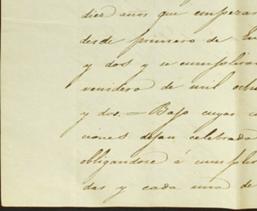 diez años que empezaran
desde primero de En
y dos y se cumpliran
venidero de mil och
y dos. = Bajo cuyas co
ciones dejan celebrada
obligandose á cumplir
das y cada una de